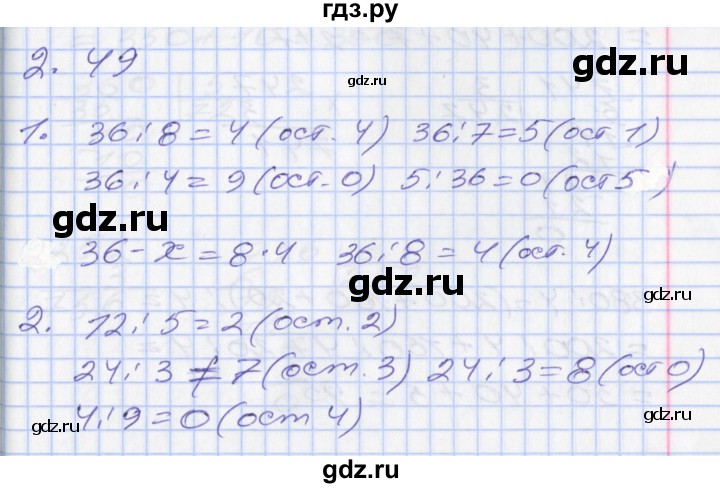 гдз.ру
2. 49
gdz.ru
gdz.ru
1. 36 : 8 = 4 (ост. 4) 36 : 7 = 5 (ост 1)
36 : 4 = 9 (ост. 0) 5 : 36 = 0 (ост 5)
gdz.ru
36 - x = 8 · 4 36 : 8 = 4 (ост. 4)
gdz.ru
gdz.ru
2. 12 : 5 = 2 (ост. 2)
24 : 3 ≠ 7 (ост. 3) 24 : 3 = 8 (ост 0)
4 : 9 = 0 (ост 4)
gdz.ru
gdz.ru
gdz.ru